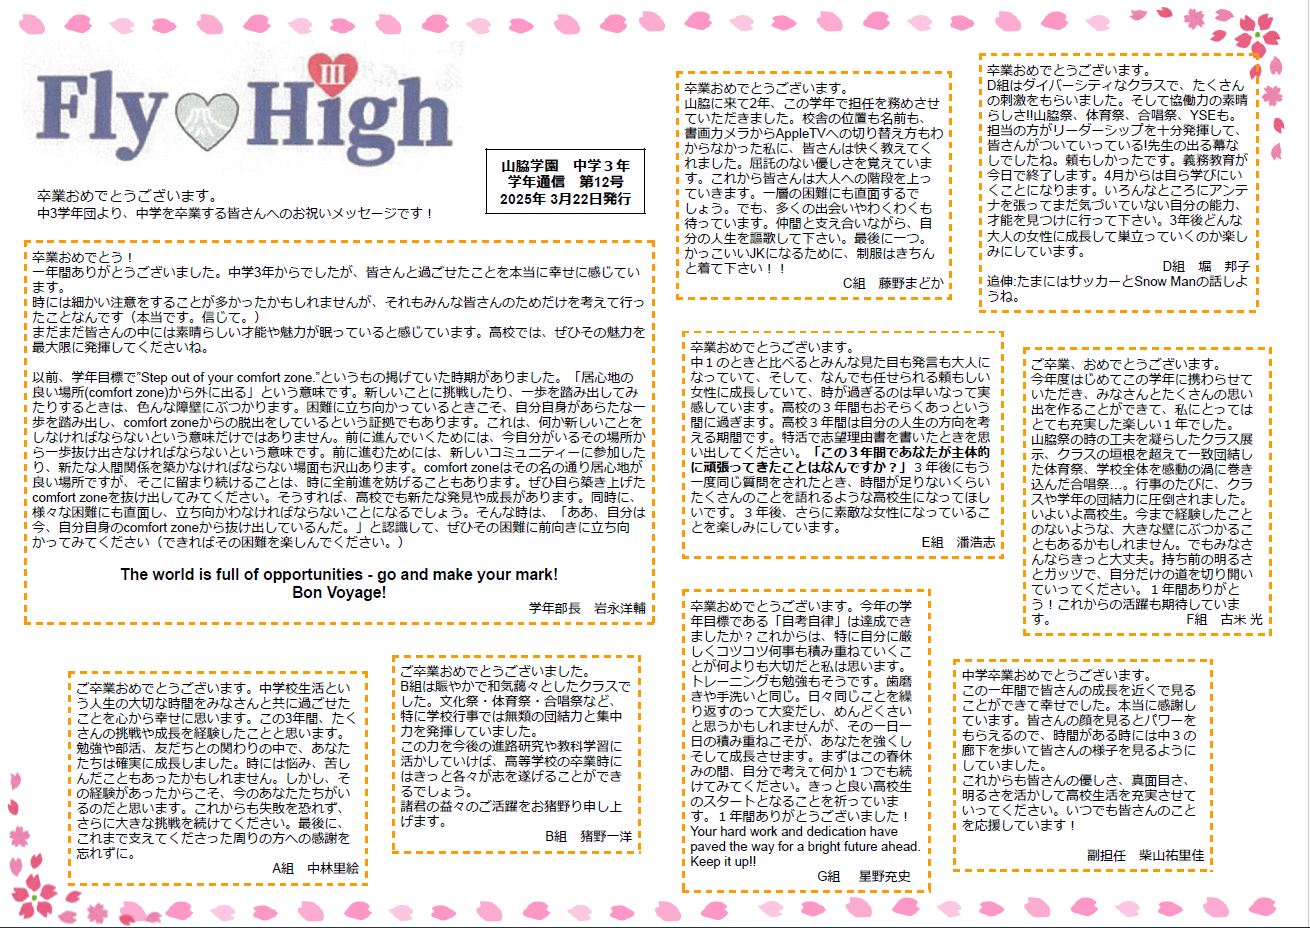 Fly High
III
山脇学園　中学３年
学年通信　第12号
2025年 3月22日発行
卒業おめでとうございます。
中3学年団より、中学を卒業する皆さんへのお祝いメッセージです！
卒業おめでとう！
一年間ありがとうございました。中学3年からでしたが、皆さんと過ごせたことを本当に幸せに感じてい
ます。
時には細かい注意をすることが多かったかもしれませんが、それもみんな皆さんのためだけを考えて行っ
たことなんです（本当です。信じて。）
まだまだ皆さんの中には素晴らしい才能や魅力が眠っていると感じています。高校では、ぜひその魅力を
最大限に発揮してくださいね。
以前、学年目標で”Step out of your comfort zone.”というもの掲げていた時期がありました。「居心地の
良い場所(comfort zone)から外に出る」という意味です。新しいことに挑戦したり、一歩を踏み出してみ
たりするときは、色んな障壁にぶつかります。困難に立ち向かっているときこそ、自分自身があらたな一
歩を踏み出し、comfort zoneからの脱出をしているという証拠でもあります。これは、何か新しいことを
しなければならないという意味だけではありません。前に進んでいくためには、今自分がいるその場所か
ら一歩抜け出さなければならないという意味です。前に進むためには、新しいコミュニティーに参加した
り、新たな人間関係を築かなければならない場面も沢山あります。comfort zoneはその名の通り居心地が
良い場所ですが、そこに留まり続けることは、時に全前進を妨げることもあります。ぜひ自ら築き上げた
comfort zoneを抜け出してみてください。そうすれば、高校でも新たな発見や成長があります。同時に、
様々な困難にも直面し、立ち向かわなければならないことになるでしょう。そんな時は、「ああ、自分は
今、自分自身のcomfort zoneから抜け出しているんだ。」と認識して、ぜひその困難に前向きに立ち向
かってみてください（できればその困難を楽しんでください。）
The world is full of opportunities - go and make your mark!
Bon Voyage!
学年部長　岩永洋輔
ご卒業おめでとうございます。中学校生活とい
う人生の大切な時間をみなさんと共に過ごせた
ことを心から幸せに思います。この3年間、たく
さんの挑戦や成長を経験したことと思います。
勉強や部活、友だちとの関わりの中で、あなた
たちは確実に成長しました。時には悩み、苦し
んだこともあったかもしれません。しかし、そ
の経験があったからこそ、今のあなたたちがい
るのだと思います。これからも失敗を恐れず、
さらに大きな挑戦を続けてください。最後に、
これまで支えてくださった周りの方への感謝を
忘れずに。
A組　中林里絵
ご卒業おめでとうございました。
B組は賑やかで和気藹々としたクラスで
した。文化祭・体育祭・合唱祭など、
特に学校行事では無類の団結力と集中
力を発揮していました。
この力を今後の進路研究や教科学習に
活かしていけば、高等学校の卒業時に
はきっと各々が志を遂げることができ
るでしょう。
諸君の益々のご活躍をお猪野り申し上
げます。
B組　猪野一洋
卒業おめでとうございます。
山脇に来て2年、この学年で担任を務めさせ
ていただきました。校舎の位置も名前も、
書画カメラからAppleTVへの切り替え方もわ
からなかった私に、皆さんは快く教えてく
れました。屈託のない優しさを覚えていま
す。これから皆さんは大人への階段を上っ
ていきます。一層の困難にも直面するで
しょう。でも、多くの出会いやわくわくも
待っています。仲間と支え合いながら、自
分の人生を謳歌して下さい。最後に一つ。
かっこいいJKになるために、制服はきちん
と着て下さい！！
C組　藤野まどか
卒業おめでとうございます。
D組はダイバーシティなクラスで、たくさん
の刺激をもらいました。そして協働力の素晴
らしさ!!山脇祭、体育祭、合唱祭、YSEも。
担当の方がリーダーシップを十分発揮して、
皆さんがついていっている!先生の出る幕な
しでしたね。頼もしかったです。義務教育が
今日で終了します。4月からは自ら学びにい
くことになります。いろんなところにアンテ
ナを張ってまだ気づいていない自分の能力、
才能を見つけに行って下さい。3年後どんな
大人の女性に成長して巣立っていくのか楽し
みにしています。
D組　堀　邦子
追伸:たまにはサッカーとSnow Manの話しよ
うね。
卒業おめでとうございます。
中１のときと比べるとみんな見た目も発言も大人に
なっていて、そして、なんでも任せられる頼もしい
女性に成長していて、時が過ぎるのは早いなって実
感しています。高校の３年間もおそらくあっという
間に過ぎます。高校３年間は自分の人生の方向を考
える期間です。特活で志望理由書を書いたときを思
い出してください。「この３年間であなたが主体的
に頑張ってきたことはなんですか？」３年後にもう
一度同じ質問をされたとき、時間が足りないくらい
たくさんのことを語れるような高校生になってほし
いです。３年後、さらに素敵な女性になっているこ
とを楽しみにしています。
E組　潘浩志
ご卒業、おめでとうございます。
今年度はじめてこの学年に携わらせて
いただき、みなさんとたくさんの思い
出を作ることができて、私にとっては
とても充実した楽しい１年でした。
山脇祭の時の工夫を凝らしたクラス展
示、クラスの垣根を超えて一致団結し
た体育祭、学校全体を感動の渦に巻き
込んだ合唱祭…。行事のたびに、クラ
スや学年の団結力に圧倒されました。
いよいよ高校生。今まで経験したこと
のないような、大きな壁にぶつかるこ
ともあるかもしれません。でもみなさ
んならきっと大丈夫。持ち前の明るさ
とガッツで、自分だけの道を切り開い
ていってください。１年間ありがと
う！これからの活躍も期待していま
す。　F組　古米 光
卒業おめでとうございます。今年の学
年目標である「自考自律」は達成でき
ましたか？これからは、特に自分に厳
しくコツコツ何事も積み重ねていくこ
とが何よりも大切だと私は思います。
トレーニングも勉強もそうです。歯磨
きや手洗いと同じ。日々同じことを繰
り返すのって大変だし、めんどくさい
と思うかもしれませんが、その一日一
日の積み重ねこそが、あなたを強くし
そして成長させます。まずはこの春休
みの間、自分で考えて何か１つでも続
けてみてください。きっと良い高校生
のスタートとなることを祈っていま
す。１年間ありがとうございました！
Your hard work and dedication have
paved the way for a bright future ahead.
Keep it up!!
G組　星野充史
中学卒業おめでとうございます。
この一年間で皆さんの成長を近くで見る
ことができて幸せでした。本当に感謝し
ています。皆さんの顔を見るとパワーを
もらえるので、時間がある時には中３の
廊下を歩いて皆さんの様子を見るように
していました。
これからも皆さんの優しさ、真面目さ、
明るさを活かして高校生活を充実させて
いってください。いつでも皆さんのこと
を応援しています！
副担任　柴山祐里佳